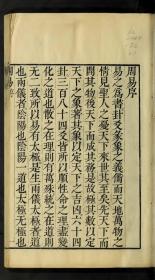 周易序
易之為書卦爻彖象之義備而天地萬物之
情見聖人之憂天下來世其至矣先天下而
開其物後天下而成其務是故極其數以定
天下之象著其象以定天下之吉凶六十四
卦三百八十四爻皆所以順性命之理盡變
化之道也散之在理則有萬殊統之在道則
无二致所以易有太極是生兩儀太極者道
也兩儀者陰陽也陰陽一道也太極无極也
周易序